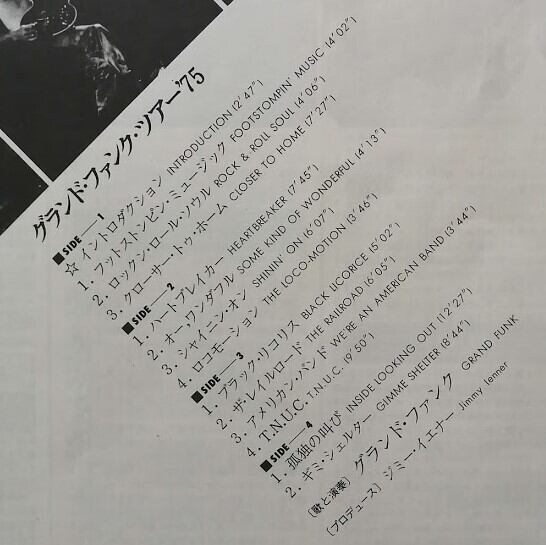 グランド・ファンク・ツアー'75
■SIDE—1
☆イントロダクション INTRODUCTION (2'47")
1. フットストンピン・ミュージック FOOTSTOMPIN' MUSIC (4'02")
2. ロックン・ロール・ソウル ROCK & ROLL SOUL (4'06")
3. クローサー・トゥ・ホーム CLOSER TO HOME (7'27")
■SIDE—2
1. ハートブレイカー HEARTBREAKER (7'45")
2. オー, ワンダフル SOME KIND OF WONDERFUL (4'13")
3. シャイニン・オン SHININ' ON (6'07")
4. ロコモーション THE LOCO-MOTION (3'46")
■SIDE—3
1. ブラック・リコリス BLACK LICORICE (5'02")
2. ザ・レイルロード THE RAILROAD (6'05")
3. アメリカン・バンド WE'RE AN AMERICAN BAND (3'44")
4. T.N.U.C. T.N.U.C. (9'50")
■SIDE—4
1. 孤独の叫び INSIDE LOOKING OUT (12'27")
2. ギミ・シェルター GIMME SHELTER (8'44")
〔歌と演奏〕グランド・ファンク GRAND FUNK
〔プロデュース〕ジミー・イエナー Jimmy Ienner